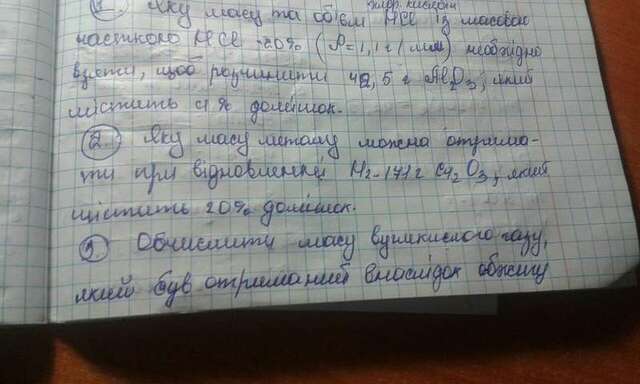 1. Яку масу та об'єм HCl із масовою
часткою HCl 20% (ρ=1,1 г/мл) необхідно
взяти, щоб розчинити 42,5 г Al2O3, який
містить 4% домішок.
2. Яку масу металу можна отрима-
ти при відновленні H2 - 171 г Cr2O3, який
містить 20% домішок.
3 Обчислити масу вуглекислого газу,
який був отриманий внаслідок обжигу